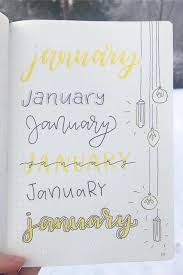 january
January
January
JANUARY
JANUARY
january